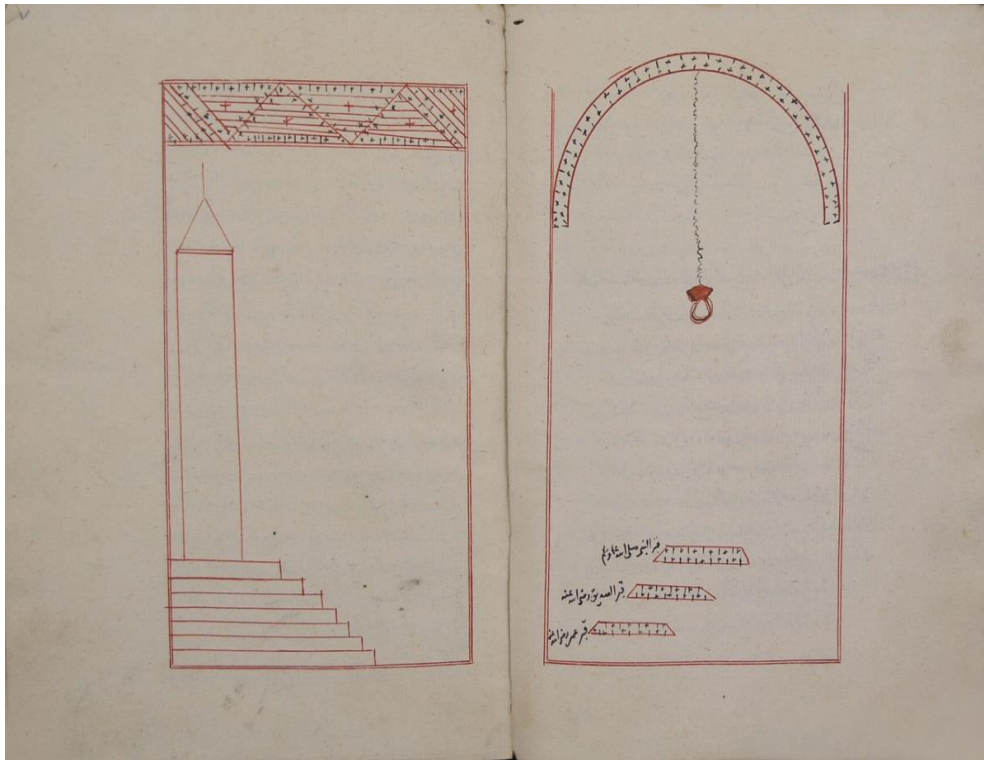 قبر النبي صلى الله عليه وسلم
قبر الصديق رضي الله عنه
قبر عمر رضي الله عنه